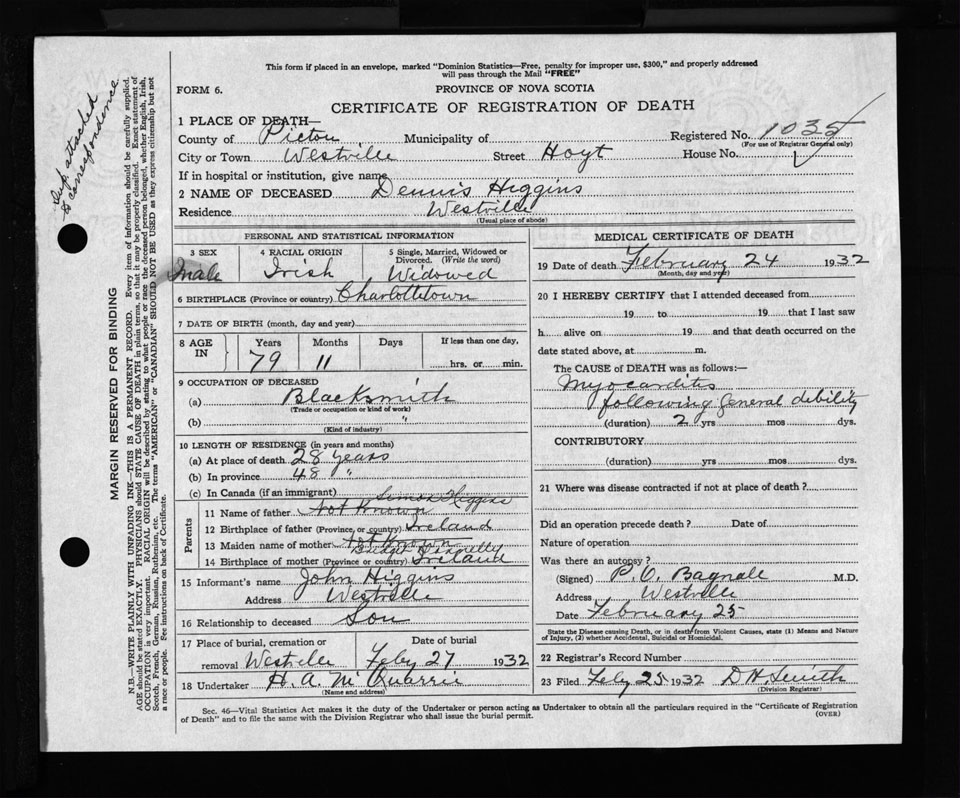 This form if placed in an envelope, marked "Dominion Statistics—Free, penalty for improper use, $300," and properly addressed
will pass through the Mail "FREE"
FORM 6.
PROVINCE OF NOVA SCOTIA
CERTIFICATE OF REGISTRATION OF DEATH
1 PLACE OF DEATH—
County of Pictou Municipality of Registered No. 1035
(For use of Registrar General only)
City or Town Westville Street Hoyt House No.
If in hospital or institution, give name
2 NAME OF DECEASED Dennis Higgins
Residence Westville
(Usual place of abode)
PERSONAL AND STATISTICAL INFORMATION
3 SEX 4 RACIAL ORIGIN 5 Single, Married, Widowed or
Divorced. (Write the word)
Male Irish Widowed
6 BIRTHPLACE (Province or country) Charlottetown
7 DATE OF BIRTH (month, day and year)
8 AGE IN Years Months Days If less than one day,
79 11 hrs. or min.
9 OCCUPATION OF DECEASED
(a) Blacksmith
(Trade or occupation or kind of work)
(b) "
(Kind of industry)
10 LENGTH OF RESIDENCE (in years and months)
(a) At place of death 28 years
(b) In province 48 "
(c) In Canada (if an immigrant)
Simon Higgins
11 Name of father Not Known
12 Birthplace of father (Province, or country) Ireland
13 Maiden name of mother Not Known
Bridget Donnelly
14 Birthplace of mother (Province or country) Ireland
Parents
15 Informant's name John Higgins
Address Westville
16 Relationship to deceased Son
17 Place of burial, cremation or removal Westville
Date of burial Feby 27 1932
18 Undertaker H. A. McQuarrie
(Name and address)
MEDICAL CERTIFICATE OF DEATH
19 Date of death February 24 1932
(Month, day and year)
20 I HEREBY CERTIFY that I attended deceased from
19 to 19 that I last saw
h alive on 19 and that death occurred on the
date stated above, at m.
The CAUSE of DEATH was as follows:—
Myocarditis
following general debility
(duration) 2 yrs mos dys.
CONTRIBUTORY
(duration) yrs mos dys.
21 Where was disease contracted if not at place of death?
Did an operation precede death? Date of
Nature of operation
Was there an autopsy?
(Signed) P. O. Bagnall M.D.
Address Westville
Date February 25
State the Disease causing Death, or in death from Violent Causes, state (1) Means and Nature
of Injury, (2) whether Accidental, Suicidal or Homicidal.
22 Registrar's Record Number
23 Filed Feby 25 1932 D H Smith
(Division Registrar)
Sec. 46—Vital Statistics Act makes it the duty of the Undertaker or person acting as Undertaker to obtain all the particulars required in the "Certificate of Registration
of Death" and to file the same with the Division Registrar who shall issue the burial permit.
(OVER)
attached
to correspondence
MARGIN RESERVED FOR BINDING
N.B.—WRITE PLAINLY WITH UNFADING INK—THIS IS A PERMANENT RECORD. Every item of Information should be carefully supplied.
AGE should be stated EXACTLY. PHYSICIANS should STATE CAUSE OF DEATH in plain terms, so that it may be properly classified. Exact statement of
OCCUPATION is very important. RACIAL ORIGIN will be described by stating to what people or race the deceased person belonged, whether English, Irish,
Scotch, French, German, Russian, Ruthenian, etc. The terms "AMERICAN" or "CANADIAN" SHOULD NOT BE USED as they express citizenship but not
a race or people. See instructions on back of Certificate.